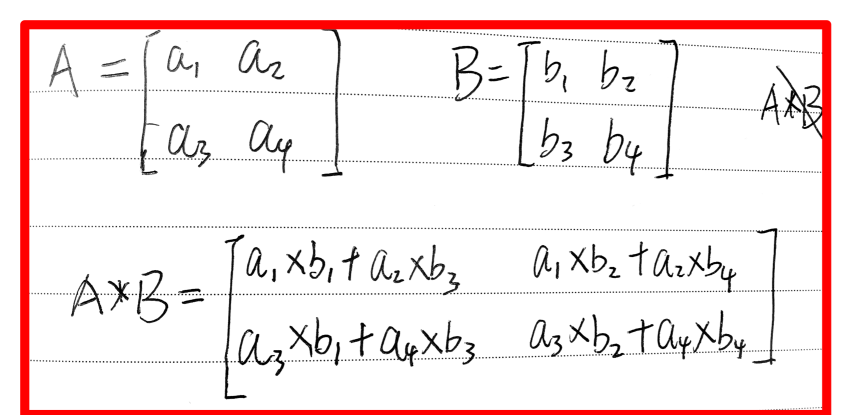 A = [a₁ a₂ B = [b₁ b₂ A*B
a₃ a₄] b₃ b₄]
A*B = [a₁×b₁+a₂×b₃ a₁×b₂+a₂×b₄
a₃×b₁+a₄×b₃ a₃×b₂+a₄×b₄]